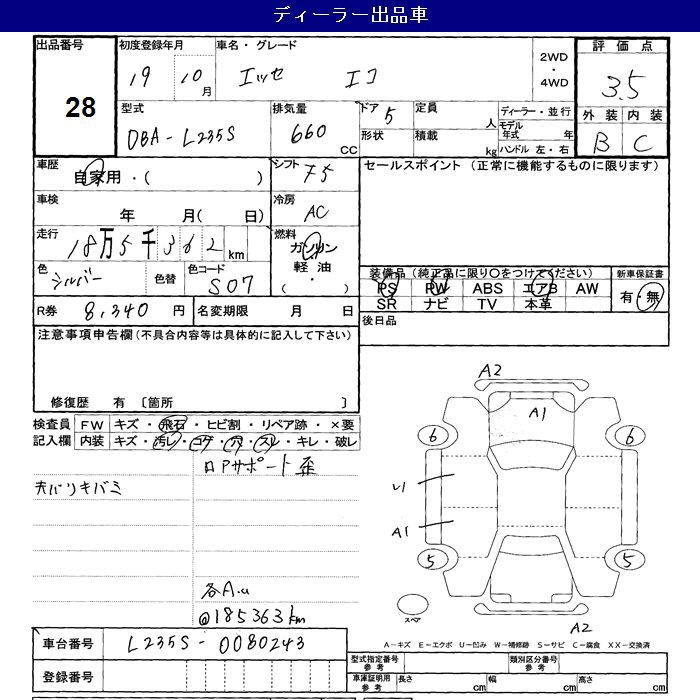 ディーラー出品車
出品番号 28
初度登録年月 19 10月
車名・グレード エッセ エコ
2WD・4WD
評価点 3.5
外装 B 内装 C
型式 DBA-L235S
排気量 660 CC
ドア 5 定員 人
形状 積載 kg
ディーラー・並行
モデル年式 年
ハンドル 左・右
車歴 自家用・( )
シフト F5
セールスポイント (正常に機能するものに限ります)
車検 年 月( 日)
冷房 AC
走行 18万5千362km
燃料 ガソリン 軽油・( ・ )
色 シルバー 色替 色コード S07
装備品(純正品に限り○をつけてください)
PS PW ABS エアB AW
SR ナビ TV 本革
新車保証書 有・無
R券 8,340円 名変期限 月 日
後日品
注意事項申告欄(不具合内容等は具体的に記入して下さい)
修復歴 有 〔箇所 〕
検査員記入欄
FW キズ・飛石・ヒビ割・リペア跡・×要
内装 キズ・汚レ・コゲ・穴・スレ・キレ・破レ
ロアサポート歪
天バリキバミ
各A.u
@185363km
A2
A1
6 6
U1
A1
5 5
スペア
A2
A-キズ E-エクボ U-凹み W-補修跡 S-サビ C-腐食 XX-交換済
車台番号 L235S-0080243
登録番号
型式指定番号 参考 類別区分番号 参考
車庫証明用 参考 長さ cm 幅 cm 高さ cm